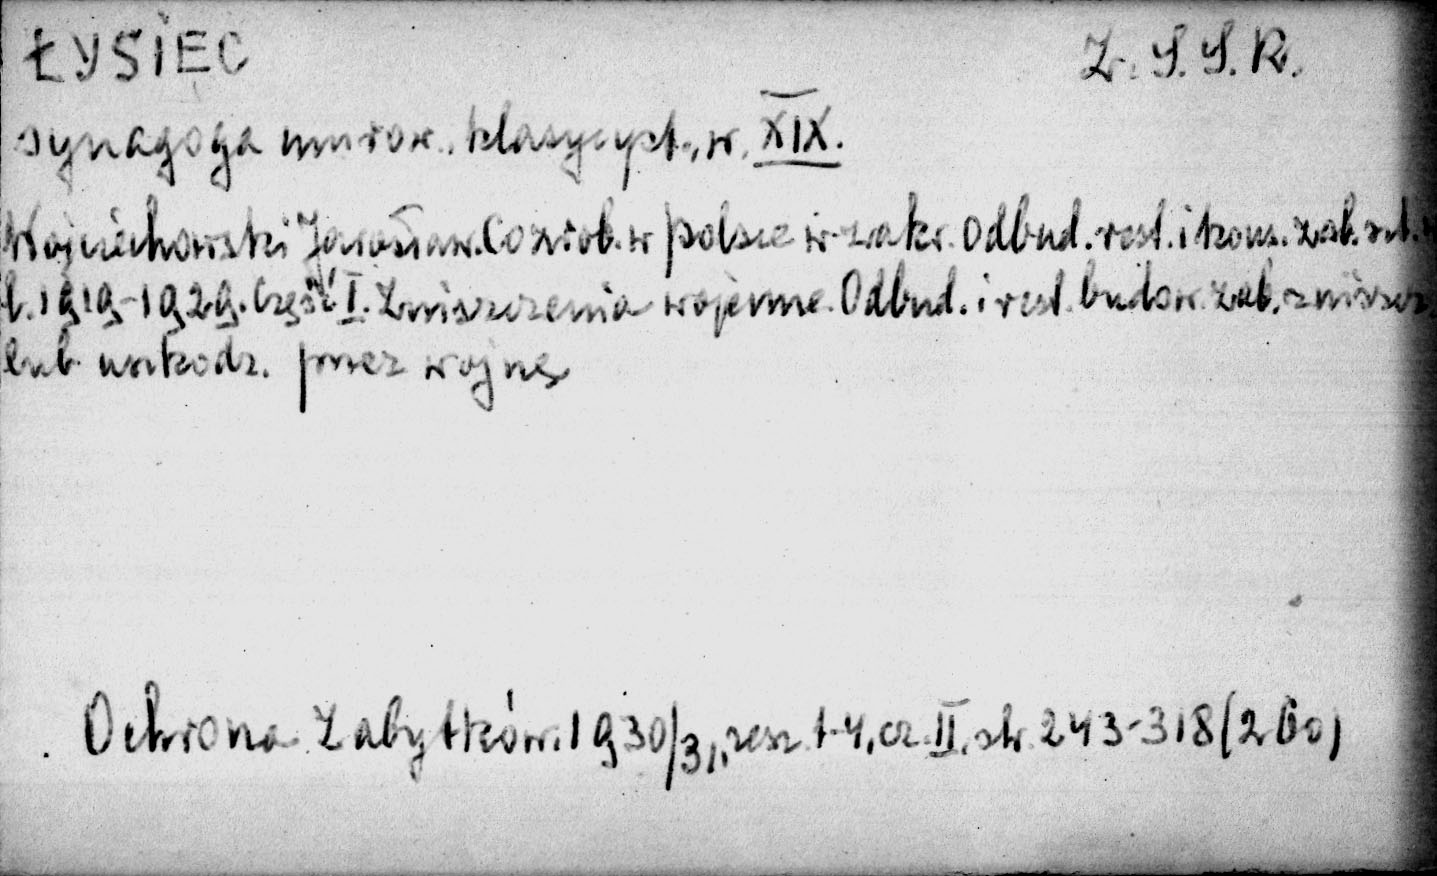 ŁYSIEC Z.S.S.R.
synagoga murow. klasycyst., w. XIX.
Wojciechowski Jarosław. Co zrob. w Polsce w zakr. odbud. rest. i kons. zab. szt. w
l. 1919-1929. Część I. Zniszczenia wojenne. Odbud. i rest. budow. zab. zniszcz.
lub uszkodz. przez wojnę
Ochrona Zabytków. 1930/31, zesz. 1-4, cz. II, str. 243-318 (260)